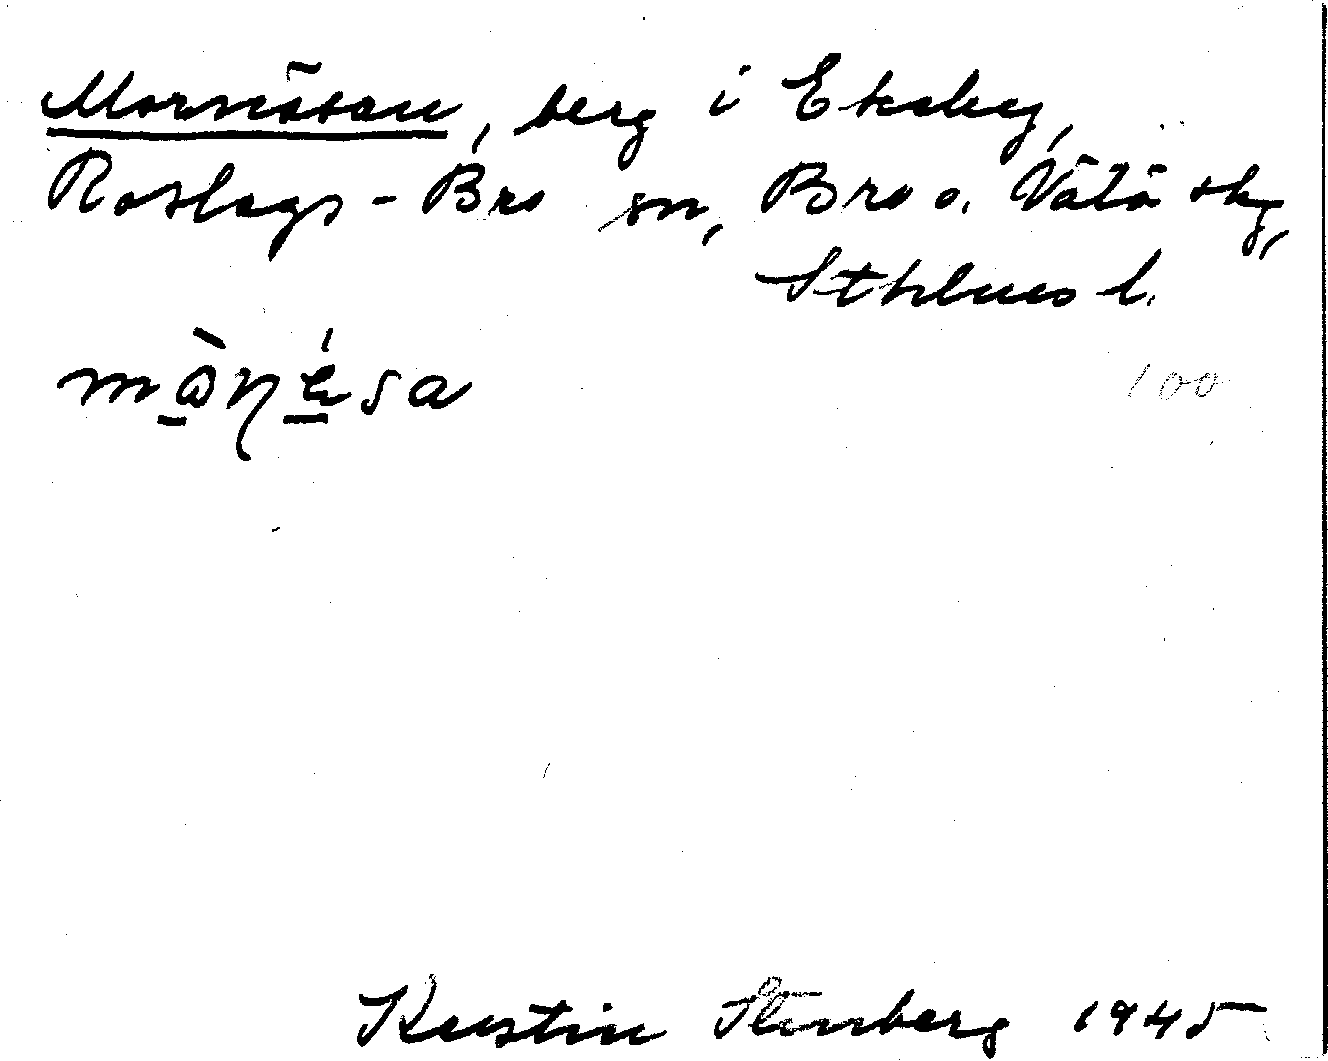 Mornäsan, berg i Eknaby,
Roslags-Bro sn, Bro o. Vätö skg,
Sthlms l.
100
Kerstin Stenberg 1945